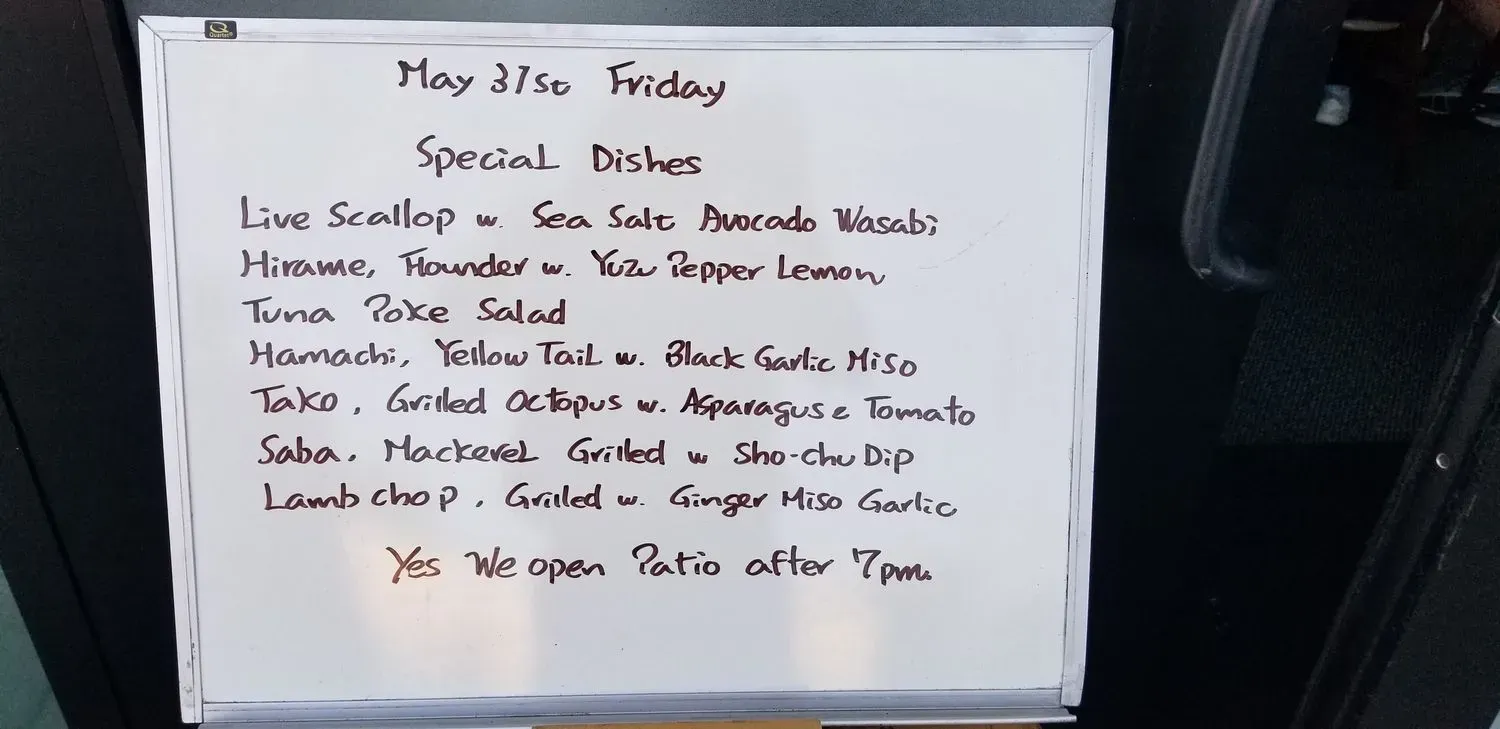 Quartet
May 31st Friday
Special Dishes
Live Scallop w. Sea Salt Avocado Wasabi
Hirame, Flounder w. Yuzu Pepper Lemon
Tuna Poke Salad
Hamachi, Yellow Tail w. Black Garlic Miso
Tako, Grilled Octopus w. Asparagus & Tomato
Saba. Mackerel Grilled w Sho-chu Dip
Lamb chop, Grilled w. Ginger Miso Garlic
Yes We open Patio after 7pm.